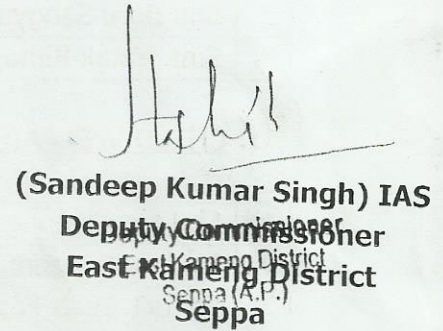 (Sandeep Kumar Singh) IAS
Deputy Commissioner
East Kameng District
Seppa
Deputy Commissioner
East Kameng District
Seppa (A.P.)